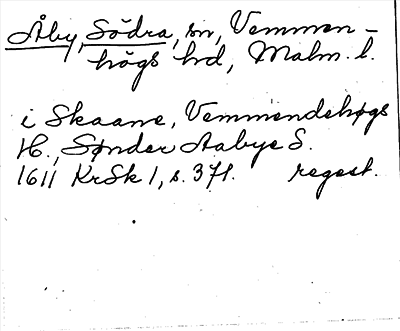 Åby, Södra, sn, Vemmen-
högs hd, Malm. l.
i Skaane, Vemmendehøgs
H., Sønder Aabye S.
1611 KrSk 1, s. 371. regest.